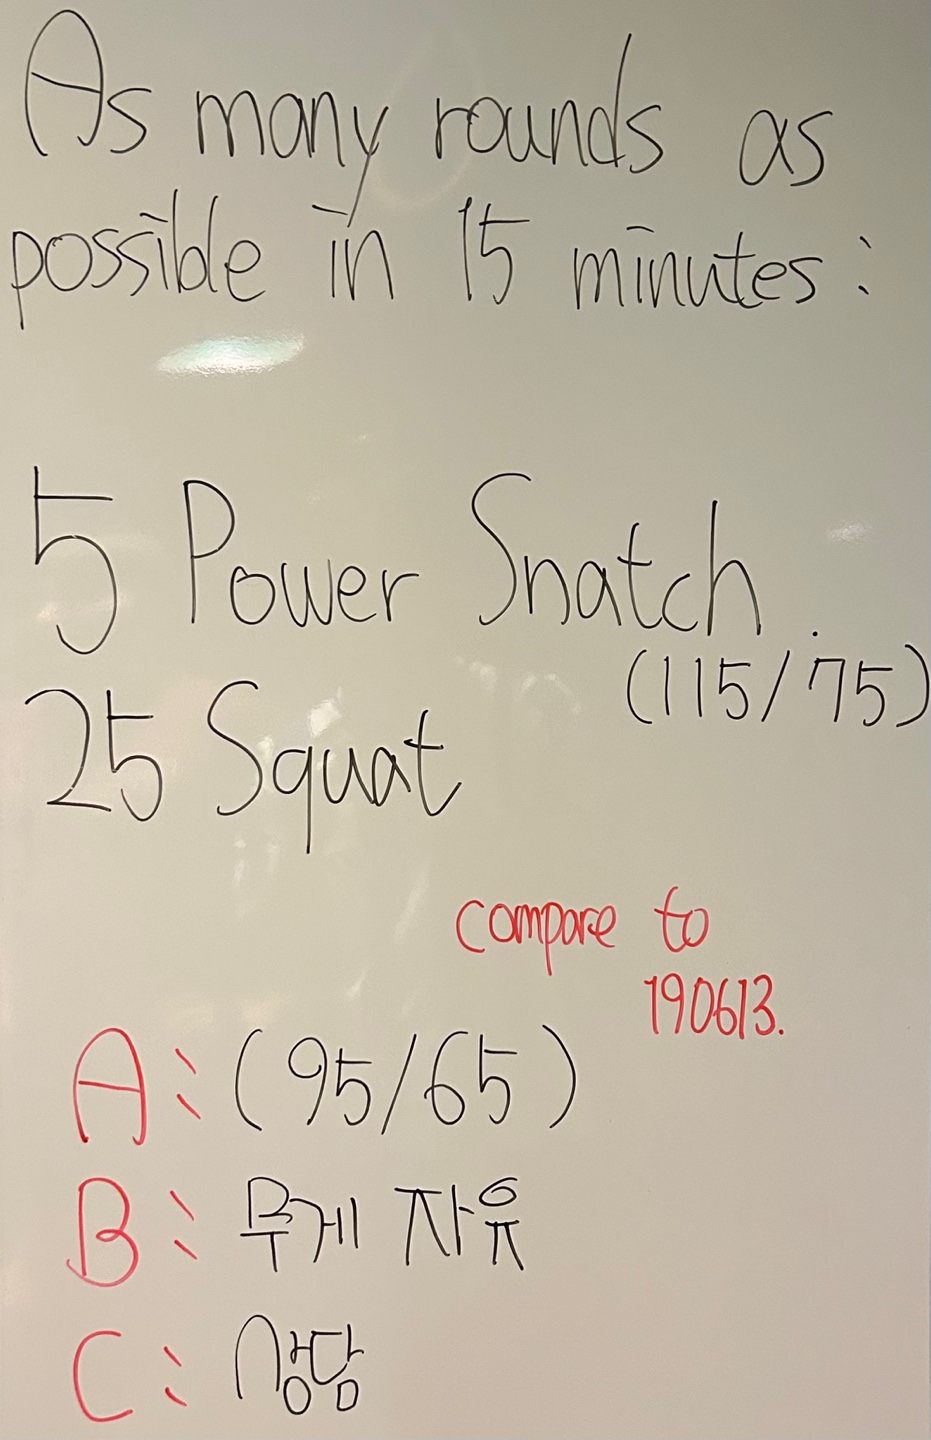 As many rounds as
possible in 15 minutes:
5 Power Snatch.
(115/75)
25 Squat
compare to
190613.
A: (95/65)
B: 무게 자유
C: 상담